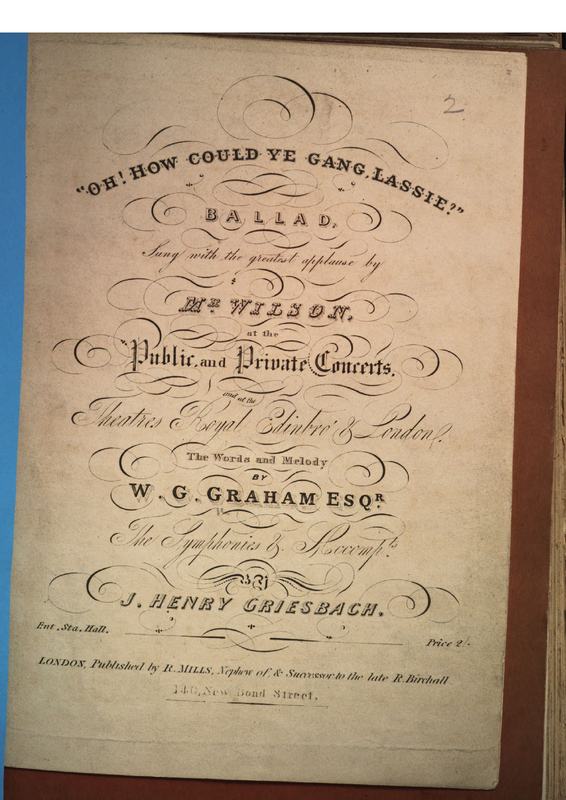 2.
"OH! HOW COULD YE GANG, LASSIE?"
BALLAD,
Sung with the greatest applause by
MR. WILSON.
at the
Public, and Private Concerts,
and at the
Theatres Royal Edinbro' & London.
The Words and Melody
BY
W. G. GRAHAM ESQR.
The Symphonies & Accompts.
BY
J. HENRY GRIESBACH.
Ent. Sta. Hall.
Price 2/-
LONDON, Published by R. MILLS, Nephew of, & Successor to the late R. Birchall
140, New Bond Street.